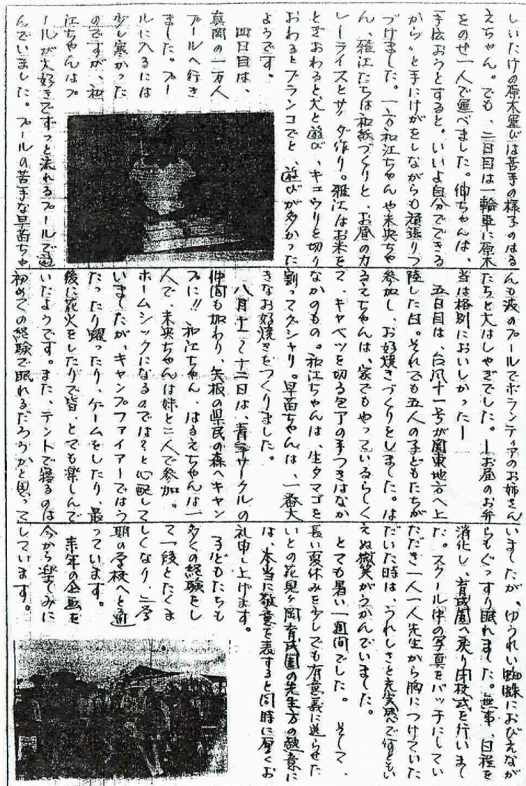 しいたけの原木運びは苦手の様子のはる
えちゃん。でも、二日目は一輪車に原木
をのせ一人で運べました。伸ちゃんは、
手伝おうとすると、いいよ自分でできる
から〃と手にけがをしながらも頑張りつ
づけました。一方和江ちゃんや未央ちゃ
ん、雅江たちは和紙づくりと、お昼のカ
レーライスとサラダ作り。雅江はお米を
とぎおわると犬と遊び、キュウリを切り
おわるとブランコでと、遊びが多かった
ようです。
四日目は、
真岡の一万人
プールへ行き
ました。プー
ルに入るには
少し寒かった
のですが、和
江ちゃんはプ
ールが大好きでずっと流れるプールで遊
んでいました。プールの苦手な早苗ちゃ
んも波のプールでボランティアのお姉さん
たちと大はしゃぎでした。―お昼のお弁
当は格別においしかった―
五日目は、台風十一号が関東地方へ上
陸した日。それでも五人の子どもたちが
参加し、お好焼きづくりをしました。は
るえちゃんは、家でもやっているらしく
て、キャベツを切る包丁の手つきはなか
なかのもの。和江ちゃんは、生タマゴを
割ってグシャリ。早苗ちゃんは、一番大
きなお好焼きをつくりました。
八月十一〜十二日は、青年サークルの
仲間も加わり、矢板の県民の森へキャン
プに!! 和江ちゃん はるえちゃんは一
人で、未央ちゃんは妹と二人で参加。
ホームシックになるのでは?と心配して
いましたが、キャンプファイアーではう
たったり踊ったり、ゲームをしたり、最
後に花火をしたりで皆、とても楽しんで
いたようです。また、テントで寝るのは
初めての経験で眠れるだろうかと思って
いましたが ゆうれい蜘蛛におびえなが
らもぐっすり眠れました。無事、日程を
消化し、育成園へ戻り閉校式を行いまし
た。スクール中の写真をバッチにしてい
ただき一人一人先生から胸につけていた
だいた時は、うれしさと充実感で何ともい
えぬ微笑がうかんでいました。
とても暑い一週間でした。 そして、
長い夏休みを少しでも有意義に送らせた
いとの花見ヶ岡育成園の先生方の熱意に
は、本当に敬意を表すると同時に厚くお
礼申し上げます。
子どもたちも
多くの経験をし
て一段とたくま
しくなり、二学
期の学校へと通
っています。
来年の企画を
今から楽しみに
しています。